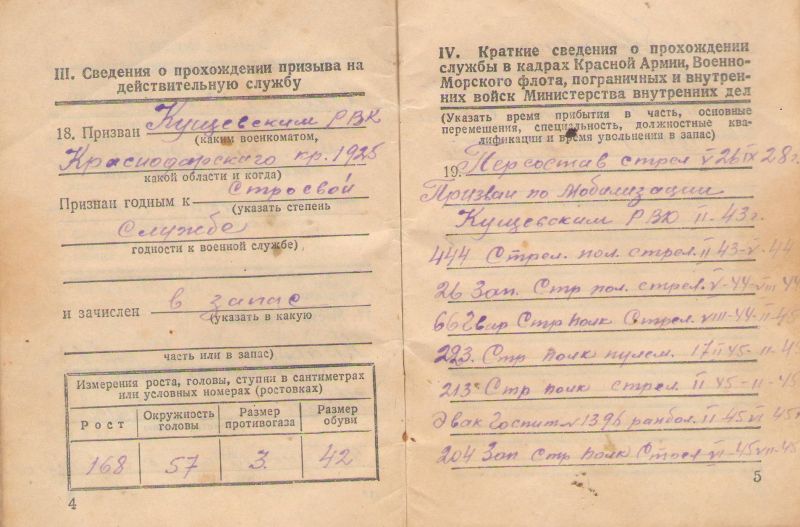 III. Сведения о прохождении призыва на
действительную службу
18. Призван Кущевским РВК
(каким военкоматом,
Краснодарского кр. 1925
какой области и когда)
Признан годным к Строевой
(указать степень
Службе
годности к военной службе)
и зачислен в запас
(указать в какую
часть или в запас)
Измерения роста, головы, ступни в сантиметрах
или условных номерах (ростовках)
Рост Окружность головы Размер противогаза Размер обуви
168 57 3. 42
4
IV. Краткие сведения о прохождении
службы в кадрах Красной Армии, Военно-
Морского флота, пограничных и внутрен-
них войск Министерства внутренних дел
(Указать время прибытия в часть, основные
перемещения, специальность, должностные ква-
лификации и время увольнения в запас)
19. Персостав стрел V 26 IX 28 г.
Призван по Мобилизации
Кущевским РВК II-43 г.
444 Стрел. пол. стрел. II 43-V-44
26 Зап. Стр пол. стрел. V-44-VIII 44
66 Гвар Стр полк Стрел. VIII-44-II-45
293. Стр полк пулем. II-45
213 Стр полк стрел. II 45-II-45
Эвак Госпит 1396 II-45 VI 45
204 Зап Стр полк VI-45 VII-45
5